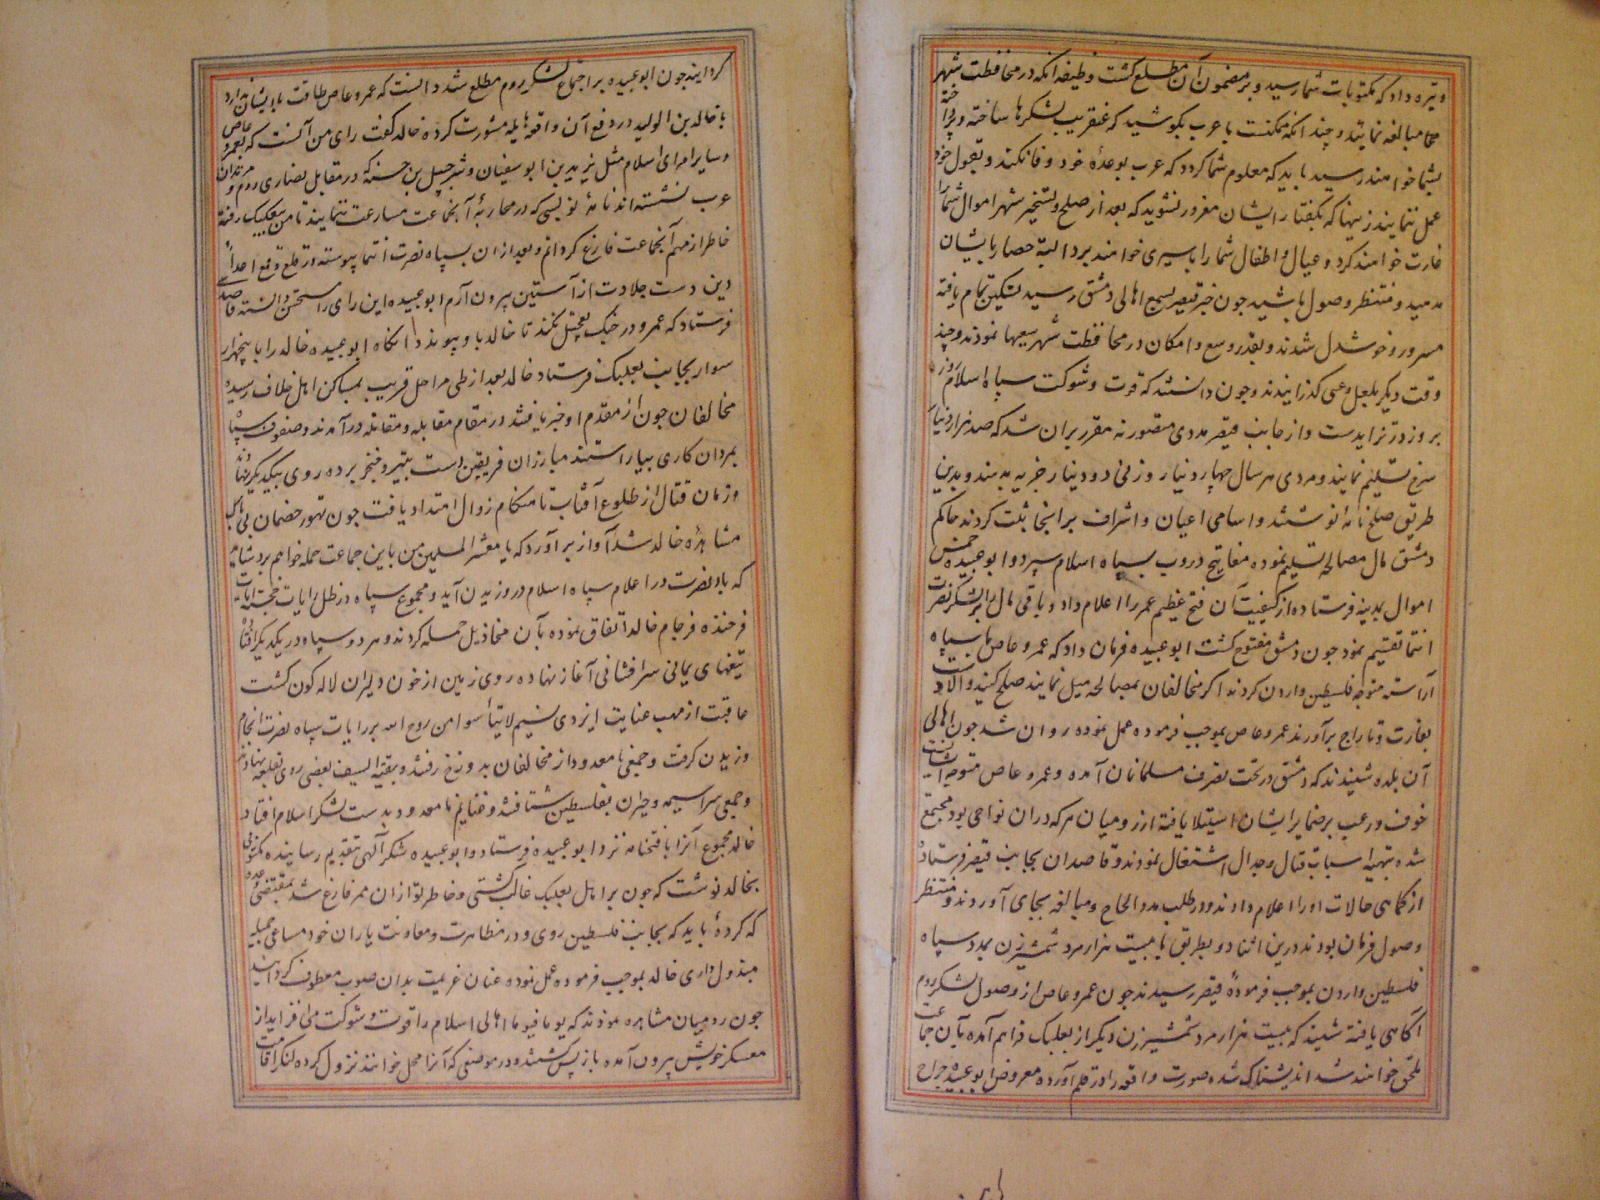 وتیره داد که مکتوبات شما رسید و بر مضمون آن مطلع گشت وظیفه آنکه در محافظت شهر
محا مبالغه نمائید و چندانکه ممکنست با عرب بکوشید که عنقریب لشکرها ساخته و پرداخته
بشما خواهند رسید باید که معلوم شما گردد که عرب بوعدهٔ خود وفا نکنند و بقول خود
عمل ننمایند زینها که بگفتار ایشان مغرور نشوید که بعد از صلح و تسخیر شهر اموال شما را
غارت خواهند کرد و عیال و اطفال شما را باسیری خواهند برد البته حصار بایشان
مدهید و منتظر وصول باشید چون خبر قیصر بسمع اهالی دمشق رسید تسکین تمام یافته
مسرور و خوشدل شدند و بقدر وسع و امکان در محافظت شهر سعیها نمودند و چند
وقت دیگر بلعل و عسی گذرانیدند و چون دانستند که قوت و شوکت سپاه اسلام روز
بروز در تزایدست و از جانب قیصر مددی متصور نه مقرر بران شد که صد هزار دینار
سرخ تسلیم نمایند و مردی هر سال چهار دینار و زنی دو دینار جزیه بدهند و بدین
طریق صلح نامهٔ نوشتند و اسامی اعیان و اشراف بر انجا ثبت کردند حاکم
دمشق مال مصالحه تسلیم نموده مفاتیح دروب بسپاه اسلام سپرد و ابوعبیده خمس
اموال بمدینه فرستاده از کیفیت آن فتح عظیم عمر را اعلام داد و باقی مال را بر لشکر نصرت
انتما تقسیم نمود چون دمشق مفتوح گشت ابوعبیده فرمان داد که عمرو عاص با سپاه
آراسته متوجه فلسطین واردن گردند اگر مخالفان بمصالحه میل نمایند صلح کنند والا دست
بغارت و تاراج برآورند عمرو عاص بموجب فرموده عمل نموده روان شد چون اهالی
آن بلده شنیدند که دمشق در تحت تصرف مسلمانان آمده و عمرو عاص متوجه ایشانست
خوف و رعب بر ضمایر ایشان استیلا یافته از رومیان هر که دران نواحی بود مجتمع
شده بتهیهٔ اسباب قتال و جدال اشتغال نمودند و قاصدان بجانب قیصر فرستاده
از کماهی حالات او را اعلام دادند و در طلب مدد الحاح و مبالغه بجای آوردند و منتظر
وصول فرمان بودند درین اثنا دو بطریق با بیست هزار مرد شمشیرزن بمدد سپاه
فلسطین واردن بموجب فرمودهٔ قیصر رسیدند چون عمرو عاص از وصول لشکر روم
آگاهی یافته شنید که بیست هزار مرد شمشیرزن دیگر از بعلبک فراهم آمده بآن جماعت
ملحق خواهند شد اندیشناک شده صورت واقعه را در قلم آورده معروض ابوعبیده جراح
گردانید چون ابوعبیده بر اجتماع لشکر روم مطلع شد دانست که عمرو عاص طاقت با ایشان ندارد
با خالد بن الولید در دفع آن واقعه هایله مشورت کرده خالد گفت رای من آنست که بعمرو عاص
و سایر امرای اسلام مثل یزید بن ابوسفیان و شرجیل بن حسنه که در مقابل نصاری روم و مرتدان
عرب نشسته‌اند نامهٔ نویسی که در محاربهٔ آنجماعت مسارعت ننمایند تا من ببعلبک رفته
خاطر از مهم آنجماعت فارغ گردانم و بعد از ان بسپاه نصرت انتما پیوسته در قلع و قمع اعداء
دین دست جلادت از آستین بیرون آرم ابوعبیده این رای را مستحسن دانسته قاصدی
فرستاد که عمرو در جنگ تعجیل نکند تا خالد باو پیوندد آنگاه ابوعبیده خالد را با پنجهزار
سوار بجانب بعلبک فرستاد خالد بعد از طی مراحل قریب بمساکن اهل خلاف رسیده
مخالفان چون از مقدم او خبر یافتند در مقام مقابله و مقاتله درآمدند و صفوف سپاه
بمردان کاری بیاراستند مبارزان فریقین دست بتیر و خنجر برده روی بیکدیگر نهادند
و زمان قتال از طلوع آفتاب تا هنگام زوال امتداد یافت چون تهور خصمان بی باک
مشاهدهٔ خالد شد آواز برآورد که یا معشر المسلمین من باین جماعت حمله خواهم برد شاید
که باد نصرت در اعلام سپاه اسلام در وزیدن آید و مجموع سپاه در ظل رایات خجسته آیات
فرخنده فرجام خالد اتفاق نموده بآن مخاذیل حمله کردند و هر دو سپاه در یکدیگر افتاده
تیغهای یمانی سرافشانی آغاز نهاده روی زمین از خون دلیران لاله گون گشت
عاقبت از مهب عنایت ایزدی نسیم لاتیأسوا من روح الله بر رایات سپاه نصرت انجام
وزیدن گرفت و جمعی نامعدود از مخالفان بدوزخ رفتند و بقیة السیف بعضی روی بقلعه نهادند
و جمعی سراسیمه و حیران بفلسطین شتافتند و غنایم نامعدود بدست لشکر اسلام افتاد
خالد مجموع آنرا با فتحنامه نزد ابوعبیده فرستاد و ابوعبیده شکر آلهی بتقدیم رسانیده مکتوبی
بخالد نوشت که چون بر اهل بعلبک غالب گشتی و خاطر تو از ان ممر فارغ شد بمقتضی وعده
که کردهٔ باید که بجانب فلسطین روی و در مظاهرت و معاونت یاران خود مساعی جمیله
مبذول داری خالد بموجب فرموده عمل نموده عنان عزیمت بدان صوب معطوف گردانید
چون رومیان مشاهده نمودند که یوما فیوما اهالی اسلام را قوت و شوکت می افزاید از
معسکر خویش بیرون آمده باز پس نشستند و در موضعی که آنرا محل خوانند نزول کرده لنگر اقامت